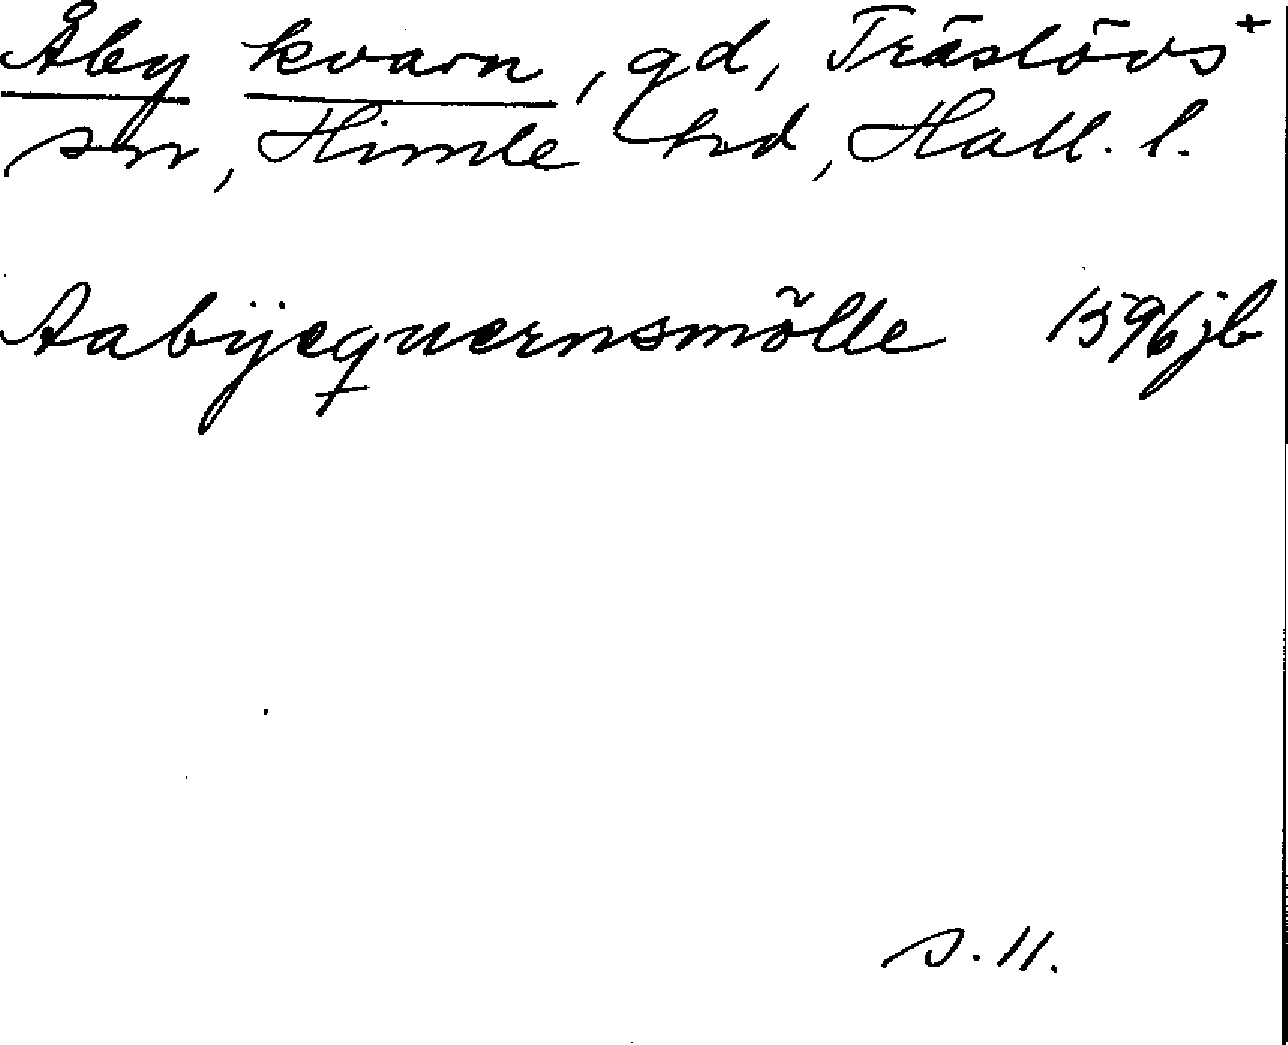 Åby kvarn, gd, Träslövs +
sn, Himle hd, Hall. l.
Aabÿequernsmölle 1596 jb
s. 11.